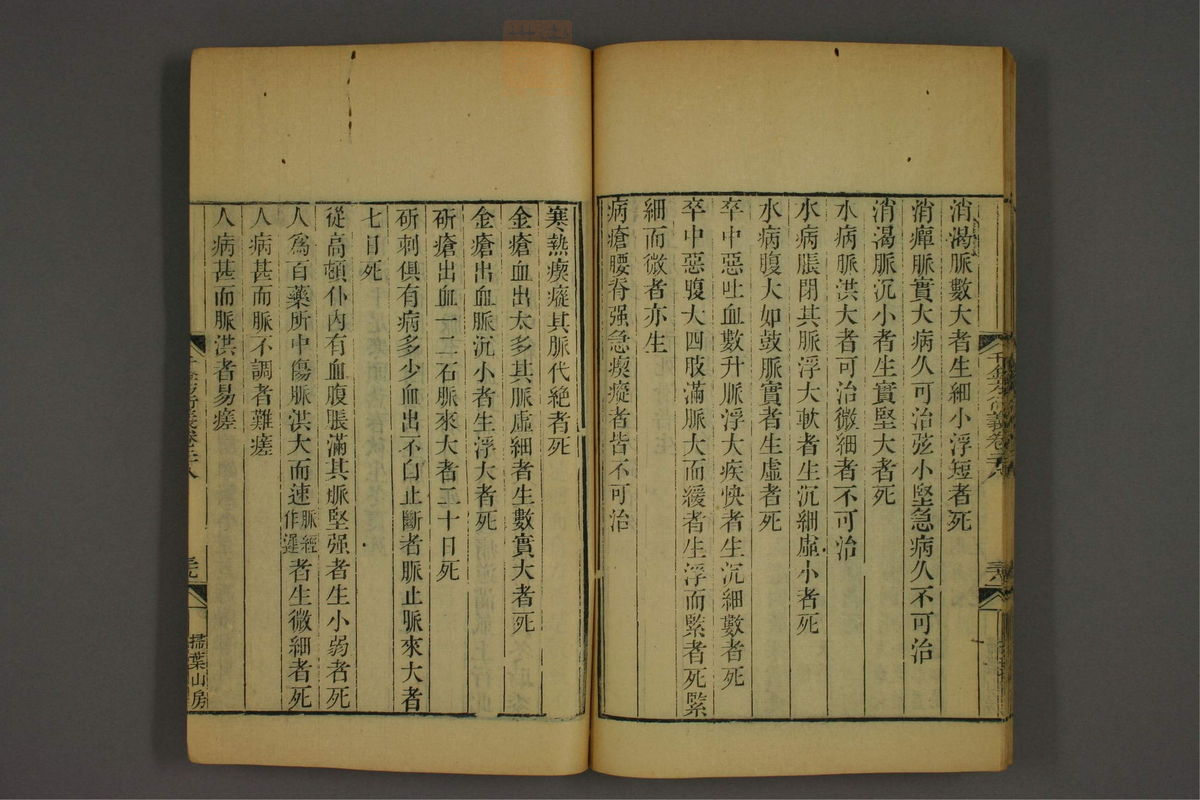 消渴脈數大者生細小浮短者死
消癉脈實大病久可治弦小堅急病久不可治
消渴脈沉小者生實堅大者死
水病脈洪大者可治微細者不可治
水病脹閉其脈浮大軟者生沉細虛小者死
水病腹大如鼓脈實者生虛者死
卒中惡吐血數升脈浮大疾快者生沉細數者死
卒中惡腹大四肢滿脈大而緩者生浮而緊者死緊
細而微者亦生
病瘡腰脊强急瘈瘲者皆不可治
寒熱瘈瘲其脈代絕者死
金瘡血出太多其脈虛細者生數實大者死
金瘡出血脈沉小者生浮大者死
斫瘡出血一二石脈來大者二十日死
斫刺俱有病多少血出不自止斷者脈止脈來大者
七日死
從高頓仆內有血腹脹滿其脈堅强者生小弱者死
人爲百藥所中傷脈洪大而速脈經作遲者生微細者死
人病甚而脈不調者難瘥
人病甚而脈洪者易瘥
千金方衍義卷二十八
掃葉山房